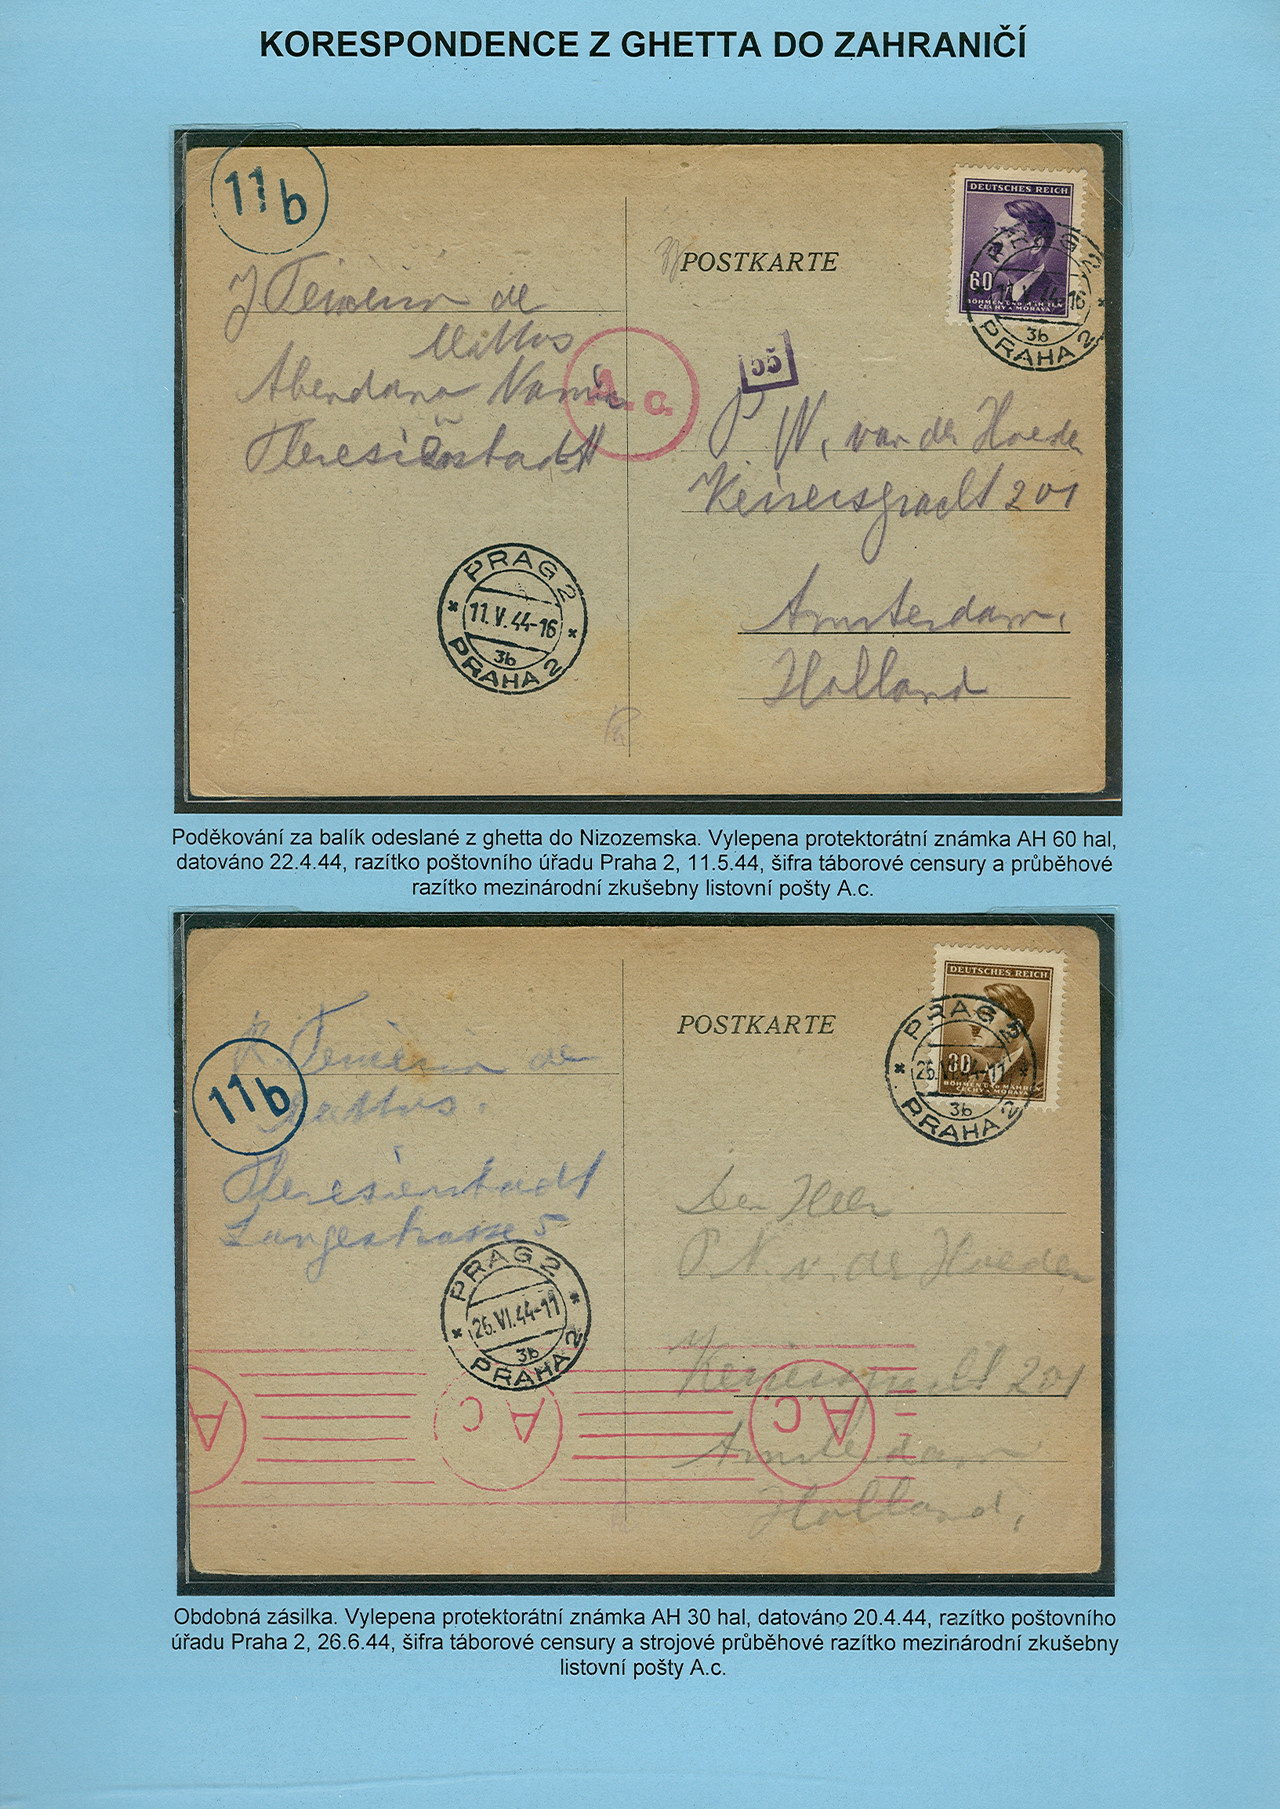 KORESPONDENCE Z GHETTA DO ZAHRANIČÍ
11b
DEUTSCHES REICH
60
BÖHMEN UND MÄHREN
ČECHY A MORAVA
PRAG 2
11.V.44-16
3b
PRAHA 2
POSTKARTE
J Teixeira de
Mattos
Abendana
Theresienstadt
A.c.
55
P W. van der Hoeden
Keizersgracht 201
Amsterdam,
Holland
PRAG 2
11.V.44-16
3b
PRAHA 2
Poděkování za balík odeslané z ghetta do Nizozemska. Vylepena protektorátní známka AH 60 hal,
datováno 22.4.44, razítko poštovního úřadu Praha 2, 11.5.44, šifra táborové censury a průběhové
razítko mezinárodní zkušebny listovní pošty A.c.
DEUTSCHES REICH
30
BÖHMEN UND MÄHREN
ČECHY A MORAVA
PRAG 2
26.VI.44-11
3b
PRAHA 2
POSTKARTE
R. Teixeira de
Mattos.
11b
Theresienstadt
Langestrasse 5
Den Heer
P. N. v. der Hoeden
Keizersgracht 201
Amsterdam
Holland,
PRAG 2
26.VI.44-11
3b
PRAHA 2
A
A c
A c
Obdobná zásilka. Vylepena protektorátní známka AH 30 hal, datováno 20.4.44, razítko poštovního
úřadu Praha 2, 26.6.44, šifra táborové censury a strojové průběhové razítko mezinárodní zkušebny
listovní pošty A.c.